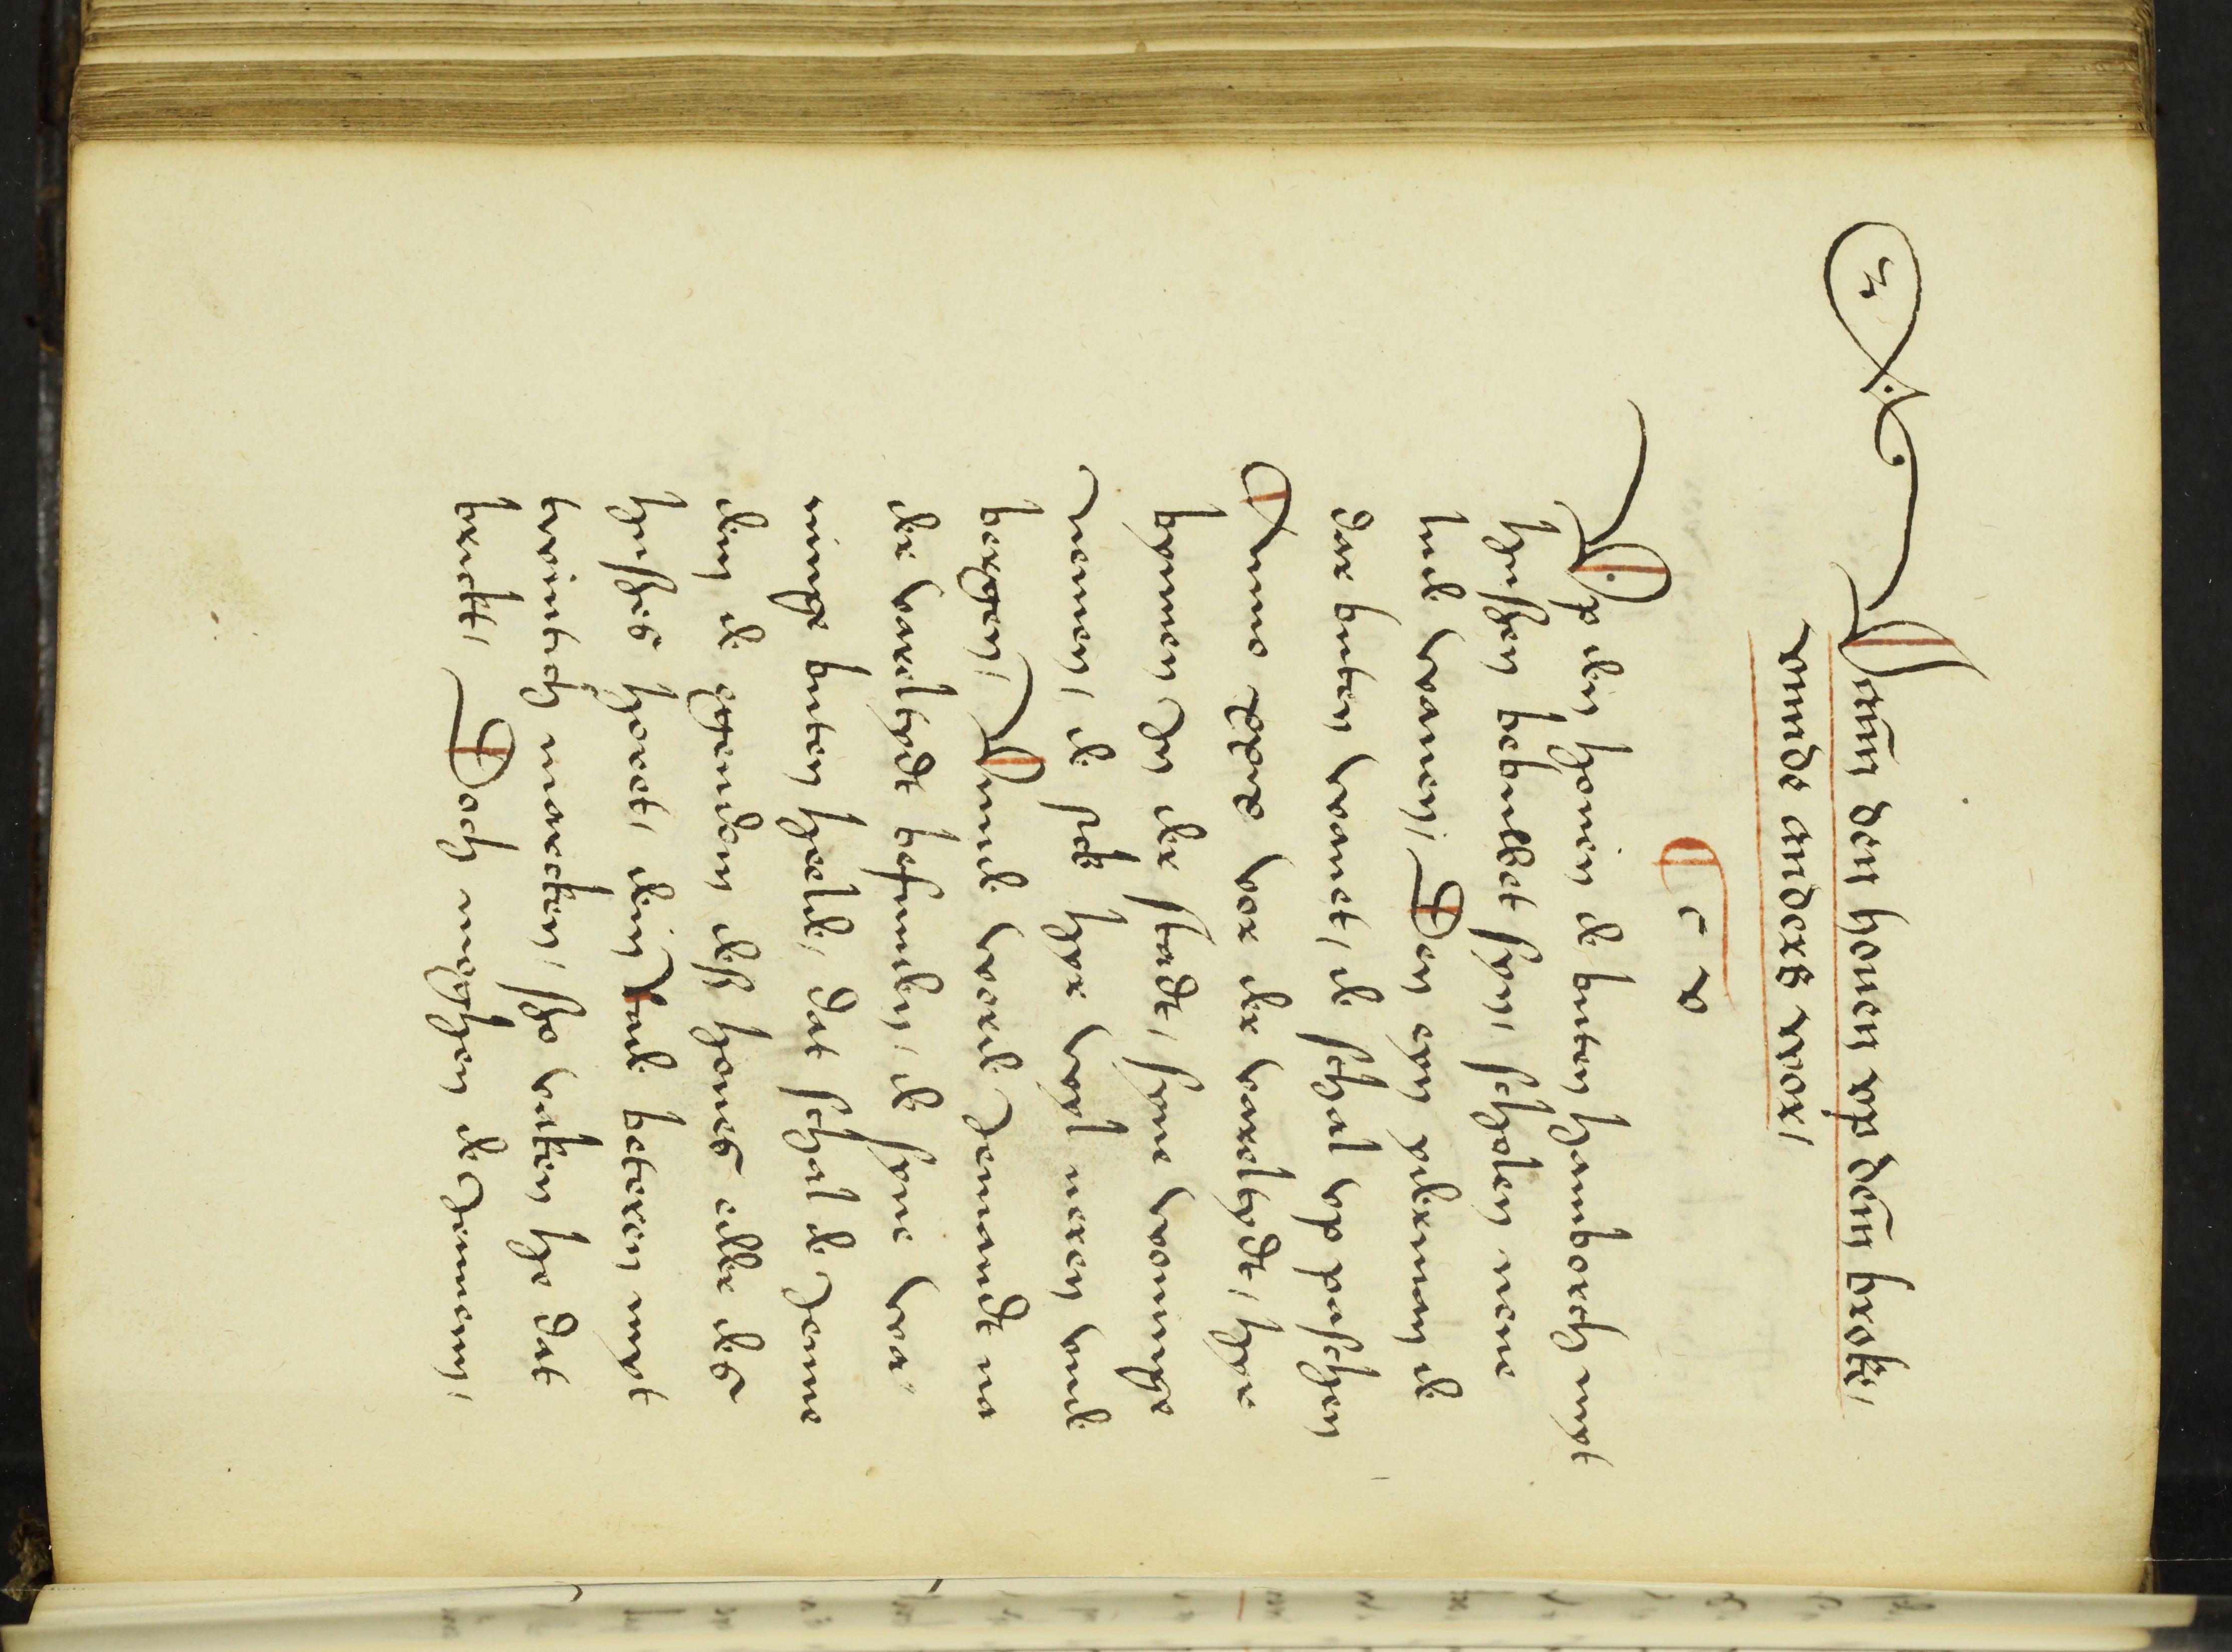 Vann den houen vp dem broke,
vnnde anders wor,
C i x
Vp den houen de buten hamborch myt
husen bebuwet syn, scholen nene
lude wanen, Den eyn yderman de
dar buten wanet, de schal vp passchen
Anno xxxv vor der vareltydt, hyr
komen In der stadt, syne woninge
nemen, de sik hyr wyl neren vnde
bergen, Vnnde worde Jemandt na
der vareltydt befunden, de syne wo=
ninge buten helde, dat schal de Jenne
den de egendom deß houes edder des
huses horet, dem Rade beteren myt
twintich marcken, so vaken he dat
brickt, Doch mogen de Jennen,